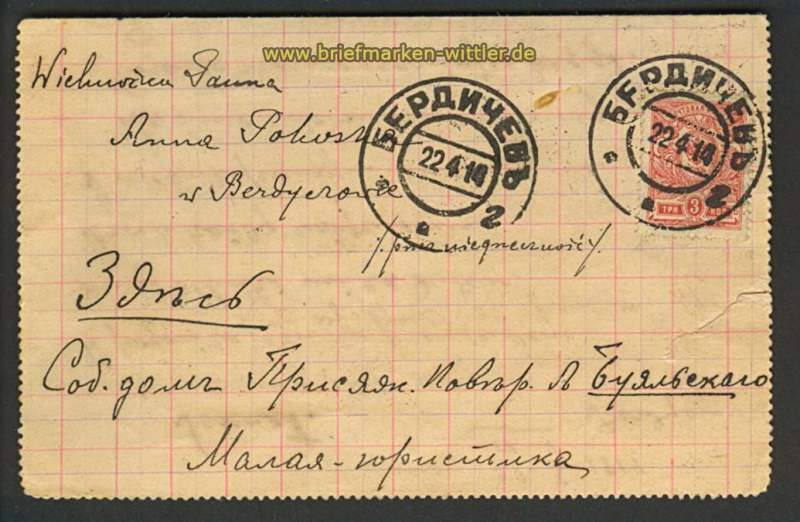 www.briefmarken-wittler.de
Wielmożna Panna
Anna
w Berdyczowie
БЕРДИЧЕВЪ
22 4 14
2
БЕРДИЧЕВЪ
22 4 14
2
ТРИ 3 КОП
Здѣсь
Соб. домъ Присяж. Повѣр. Буяльскаго
Малая-юристика